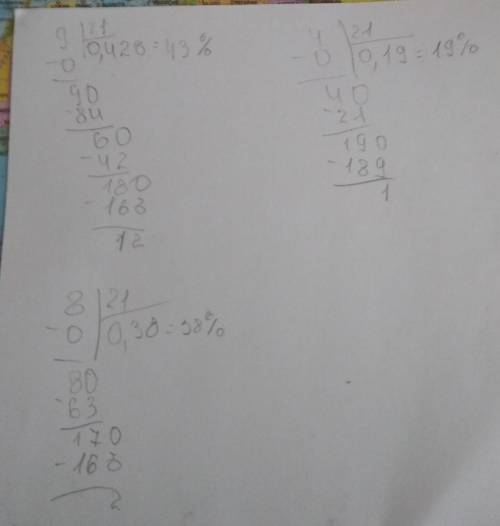 9 | 21
- 0 | 0,428 = 43%
90
- 84
60
- 42
180
- 168
12
4 | 21
- 0 | 0,19 = 19%
40
- 21
190
- 189
1
8 | 21
- 0 | 0,38 = 38%
80
- 63
170
- 168
2